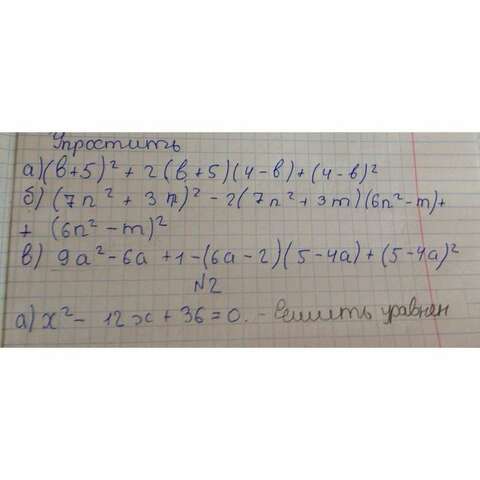 Упростить
а)(в+5)² + 2(в+5)(4-в)+(4-в)²
б) (7n² + 3m)² - 2(7n² + 3m)(6n²-m)+
+ (6n² - m)²
в) 9a² - 6a + 1 - (6a - 2)(5-4a)+(5-4a)²
N2
а) x² - 12x + 36 = 0. - Решить уравнен